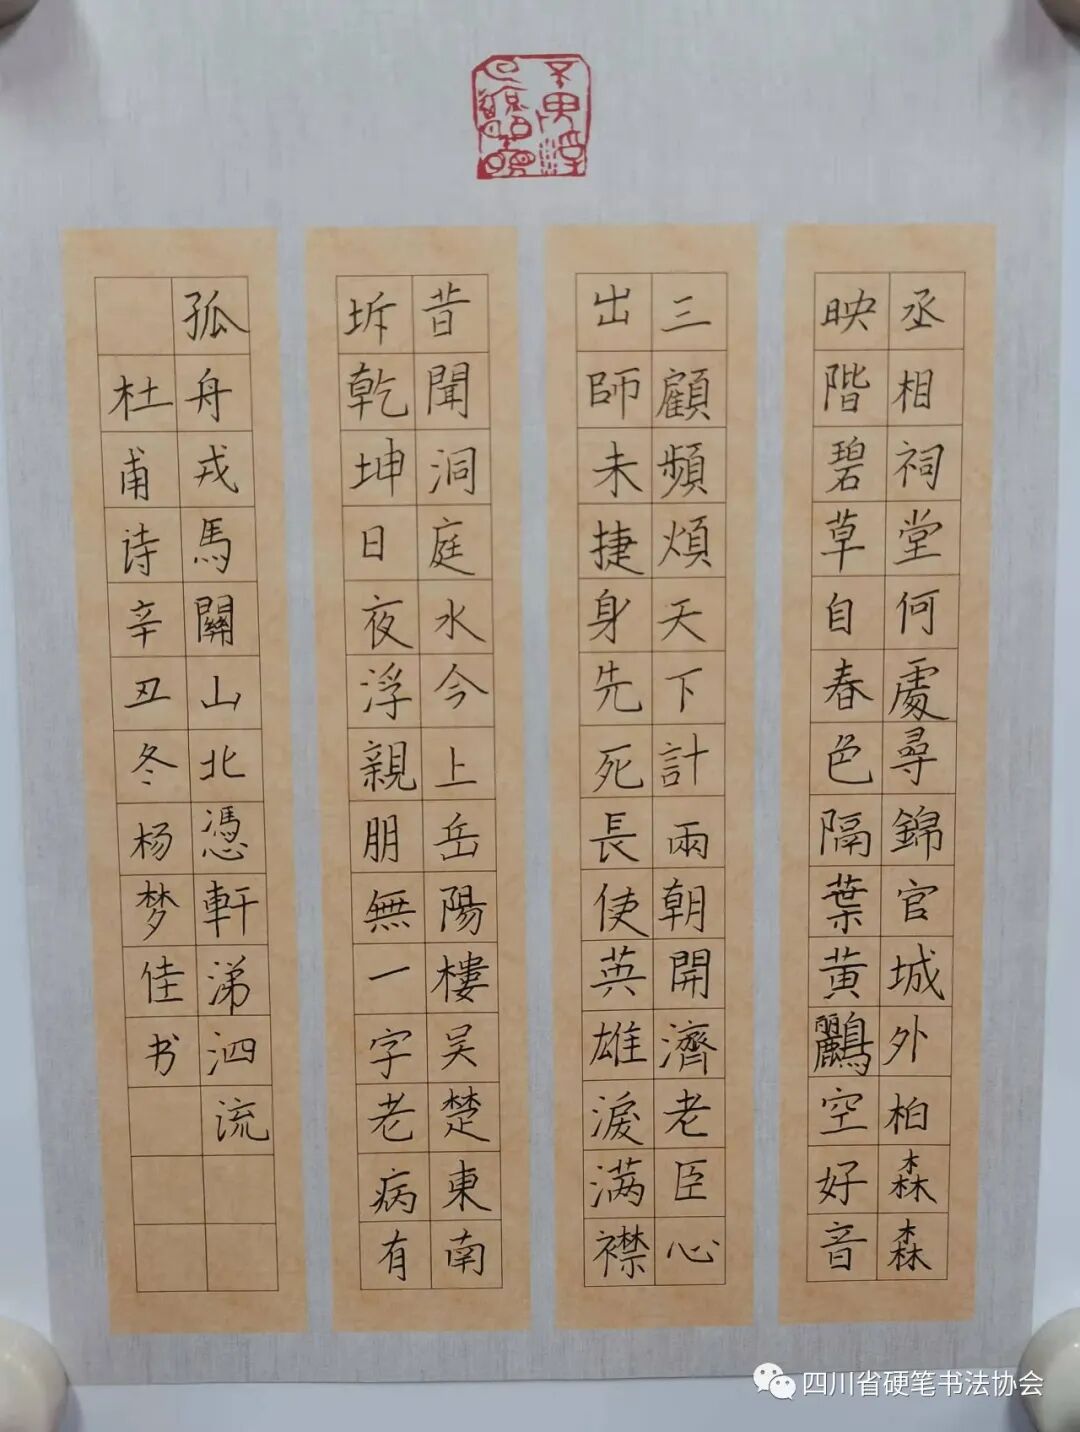 丞相祠堂何處尋錦官城外柏森森
映階碧草自春色隔葉黃鸝空好音
三顧頻煩天下計兩朝開濟老臣心
出師未捷身先死長使英雄淚满襟
昔聞洞庭水今上岳陽樓吴楚東南
坼乾坤日夜浮親朋無一字老病有
孤舟戎馬關山北憑軒涕泗流
杜甫诗辛丑冬杨梦佳书
四川省硬笔书法协会